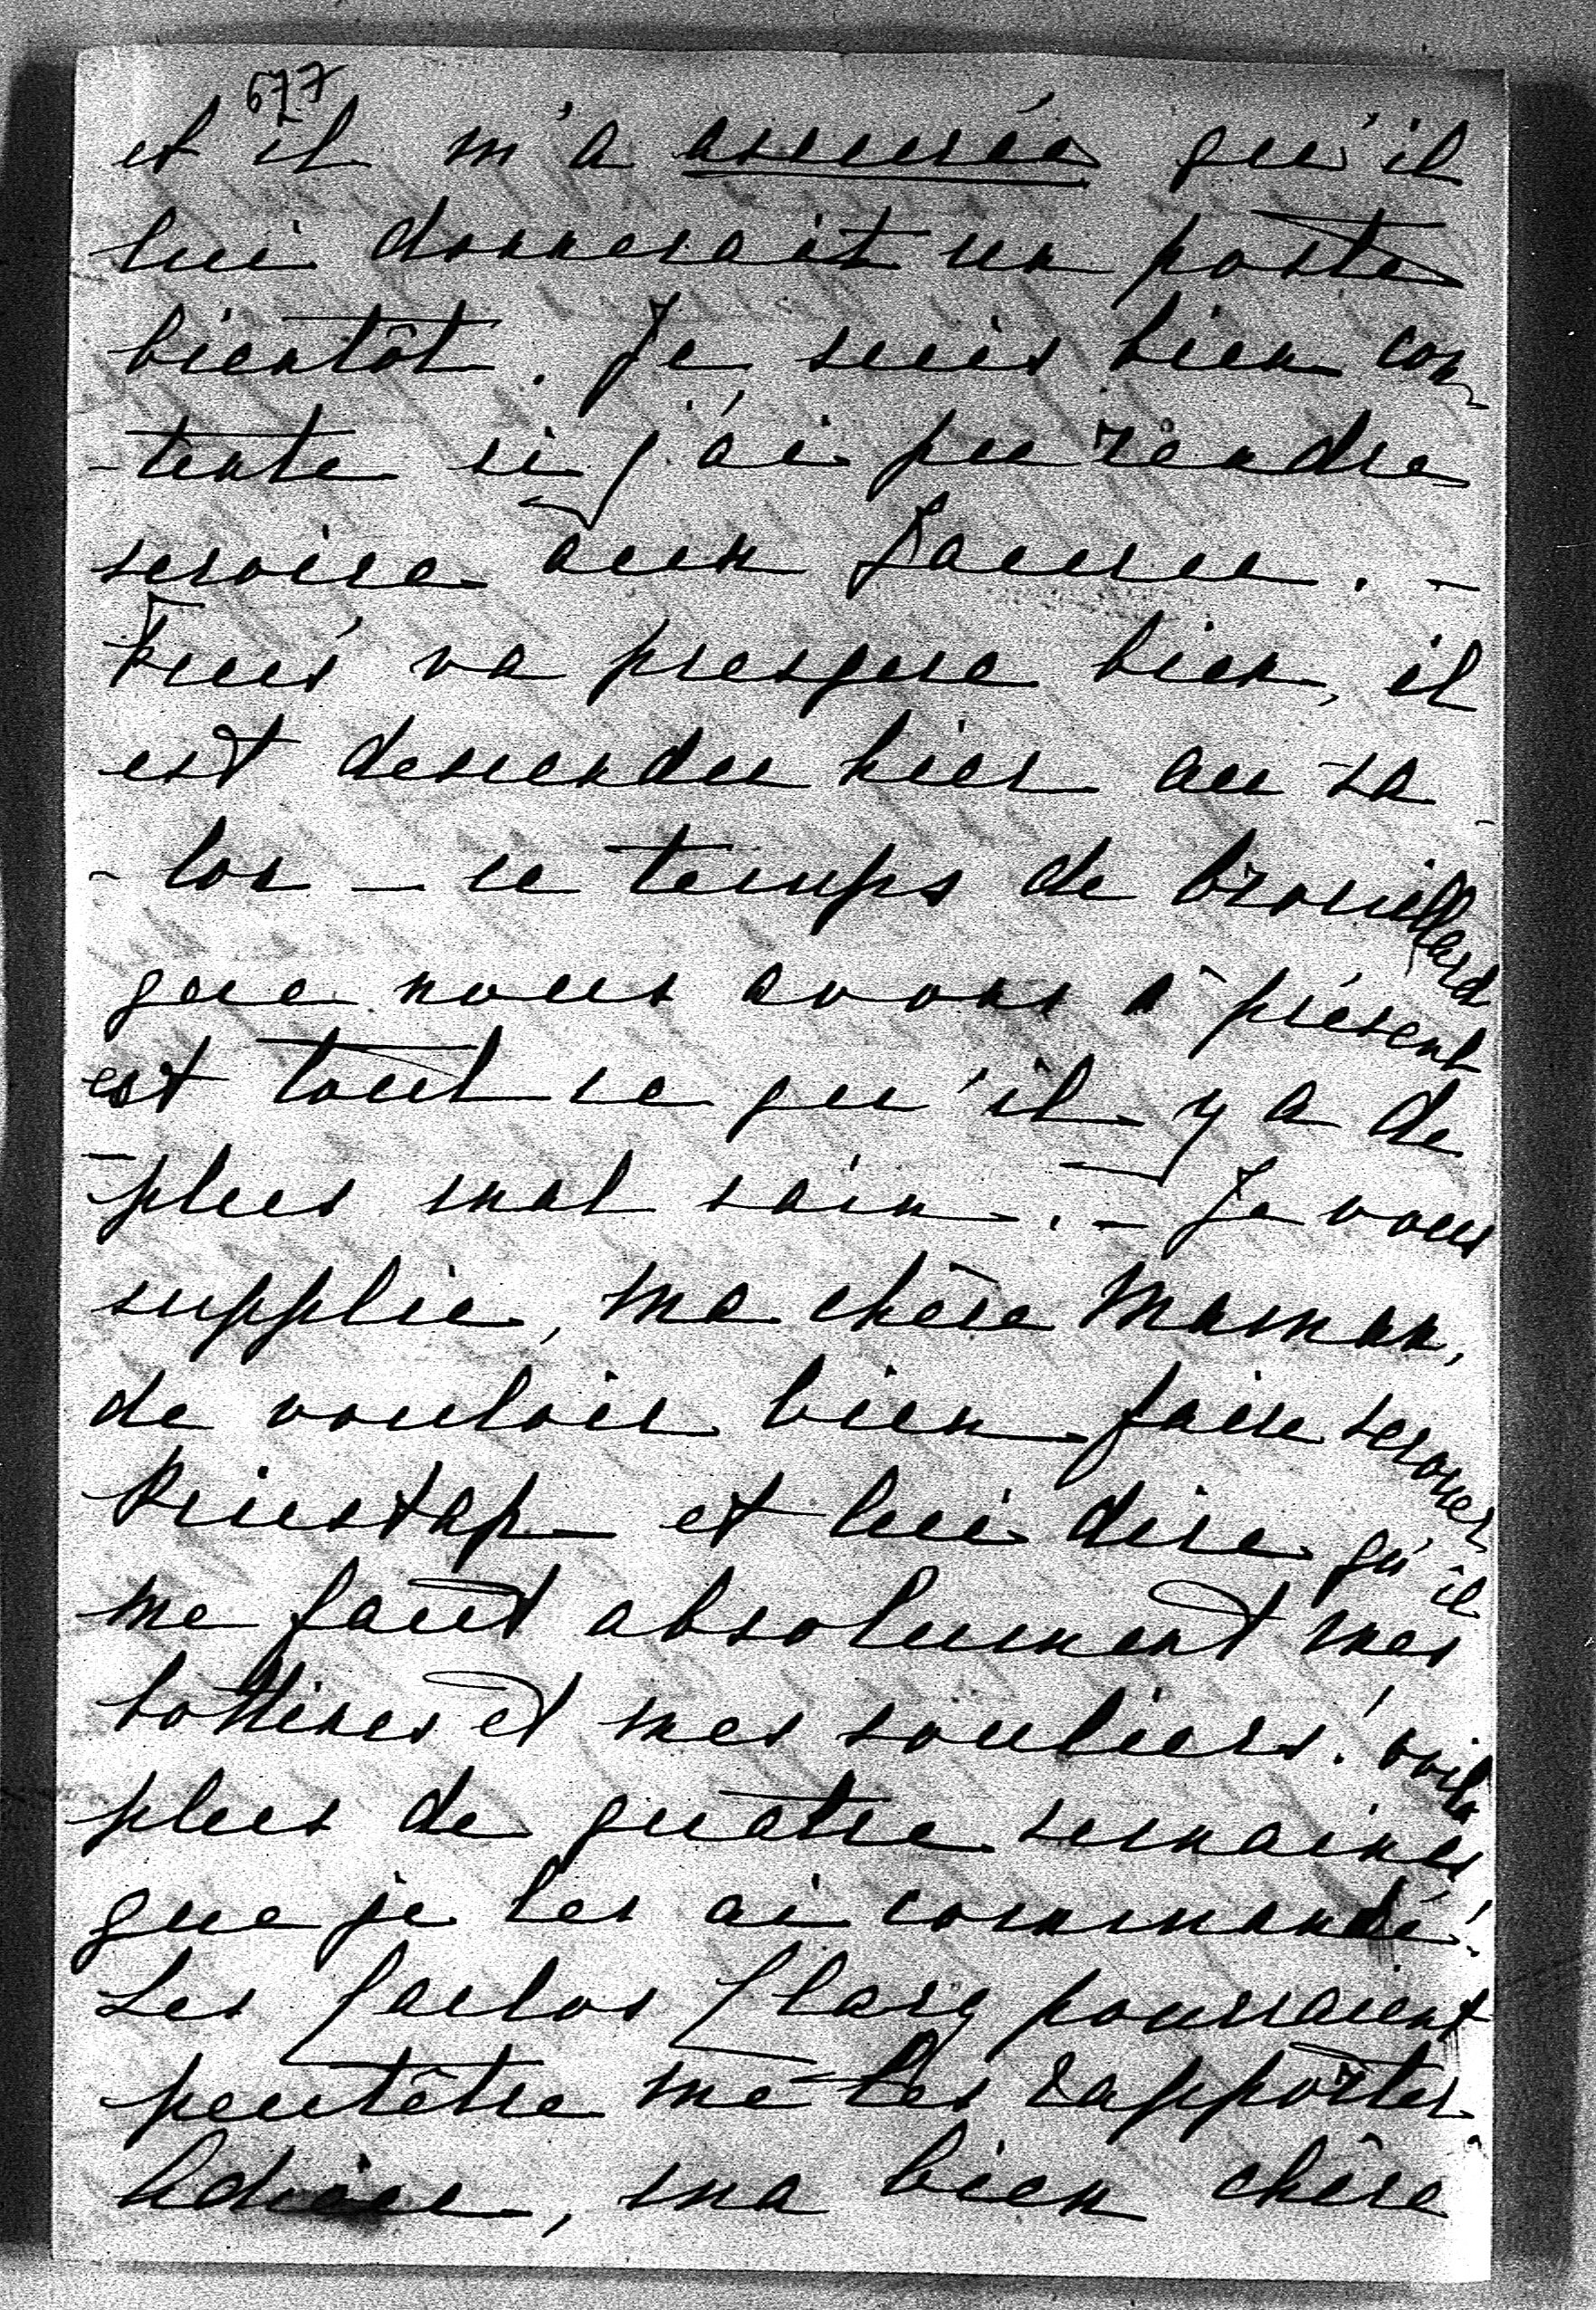 677
et il m'a assurée qu'il
lui donnerait un poste
bientôt. Je suis bien con
-tente si j'ai pu rendre
service aux
va presque bien, il
est descendu hier au sa-
-lon – ce temps de brouillard
que nous avons à présent
est tout ce qu'il y a de
plus mal sain. – Je vous
supplie, ma chère Maman,
de vouloir bien faire sermoner
et lui dire qu'il
me faut absolument mes
bottines et mes souliers! voilà
plus de quatre semaines
que je les ai commandé!
Les pourraient
peutêtre me les rapporter.
Adieu, ma bien chère